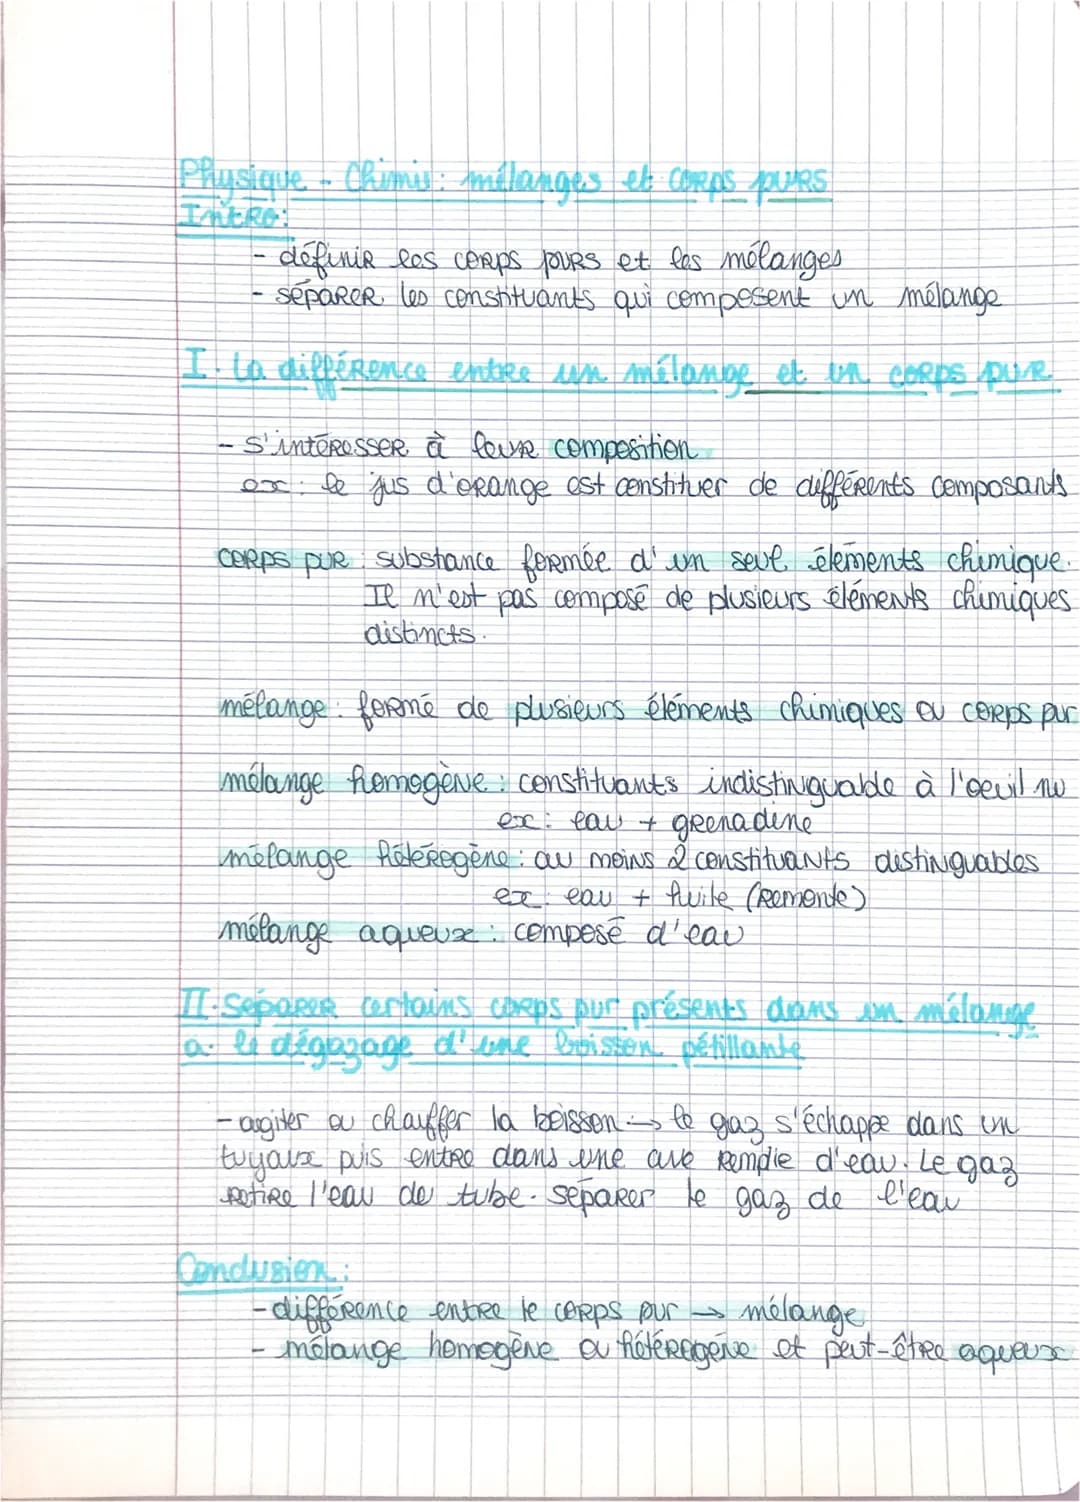 Physique - Chimie : mélanges et corps purs
Intro :
- définir les corps purs et les mélanges
- séparer les constituants qui composent un mélange
I. La différence entre un mélange et un corps pur
- s'intéresser à leur composition
ex : le jus d'orange est constituer de différents composants
corps pur : substance formée d'un seul éléments chimique.
Il n'est pas composé de plusieurs éléments chimiques
distincts.
mélange : formé de plusieurs éléments chimiques ou corps pur
mélange homogène : constituants indistinguable à l'oeuil nu
ex : eau + grenadine
mélange hétérogène : au moins 2 constituants distinguables
ex : eau + huile (remonte)
mélange aqueux : composé d'eau
II. Séparer certains corps pur présents dans un mélange
a. le dégazage d'une boisson pétillante
- agiter ou chauffer la boisson : → le gaz s'échappe dans un
tuyaux puis entre dans une cuve remplie d'eau. Le gaz
retire l'eau de tube. séparer le gaz de l'eau
Conclusion :
- différence entre le corps pur → mélange
- mélange homogène ou hétérogène et peut-être aqueux